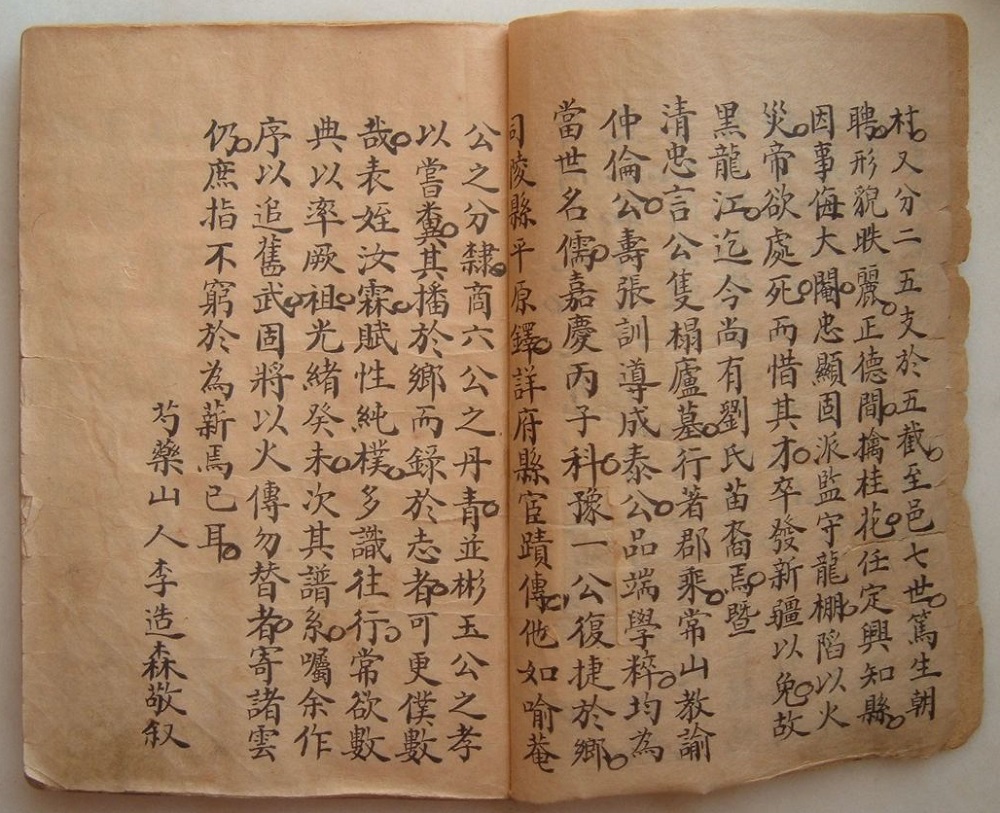 村又分二五支於五截至邑七世篤生朝
聘形貌昳麗正德間擒桂花任定興知縣
因事侮大閹忠顯固派監守龍棚陷以火
災帝欲處死而惜其才卒發新疆以免故
黑龍江迄今尚有劉氏苗裔焉暨
清忠言公隻榻廬墓行著郡乘常山教諭
仲倫公壽張訓導成泰公品端學粹均為
當世名儒嘉慶丙子科豫一公復捷於鄉
司陵縣平原鐸詳府縣宦蹟傳他如喻菴
公之分隸商六公之丹青並彬玉公之孝
以嘗糞其播於鄉而錄於志者可更僕數
哉表姪汝霖賦性純樸多識往行常欲數
典以率厥祖光緒癸未次其譜系囑余作
序以追舊武固將以火傳勿替者寄諸雲
仍庶指不窮於為薪焉已耳
芍藥山人李造森敬叙